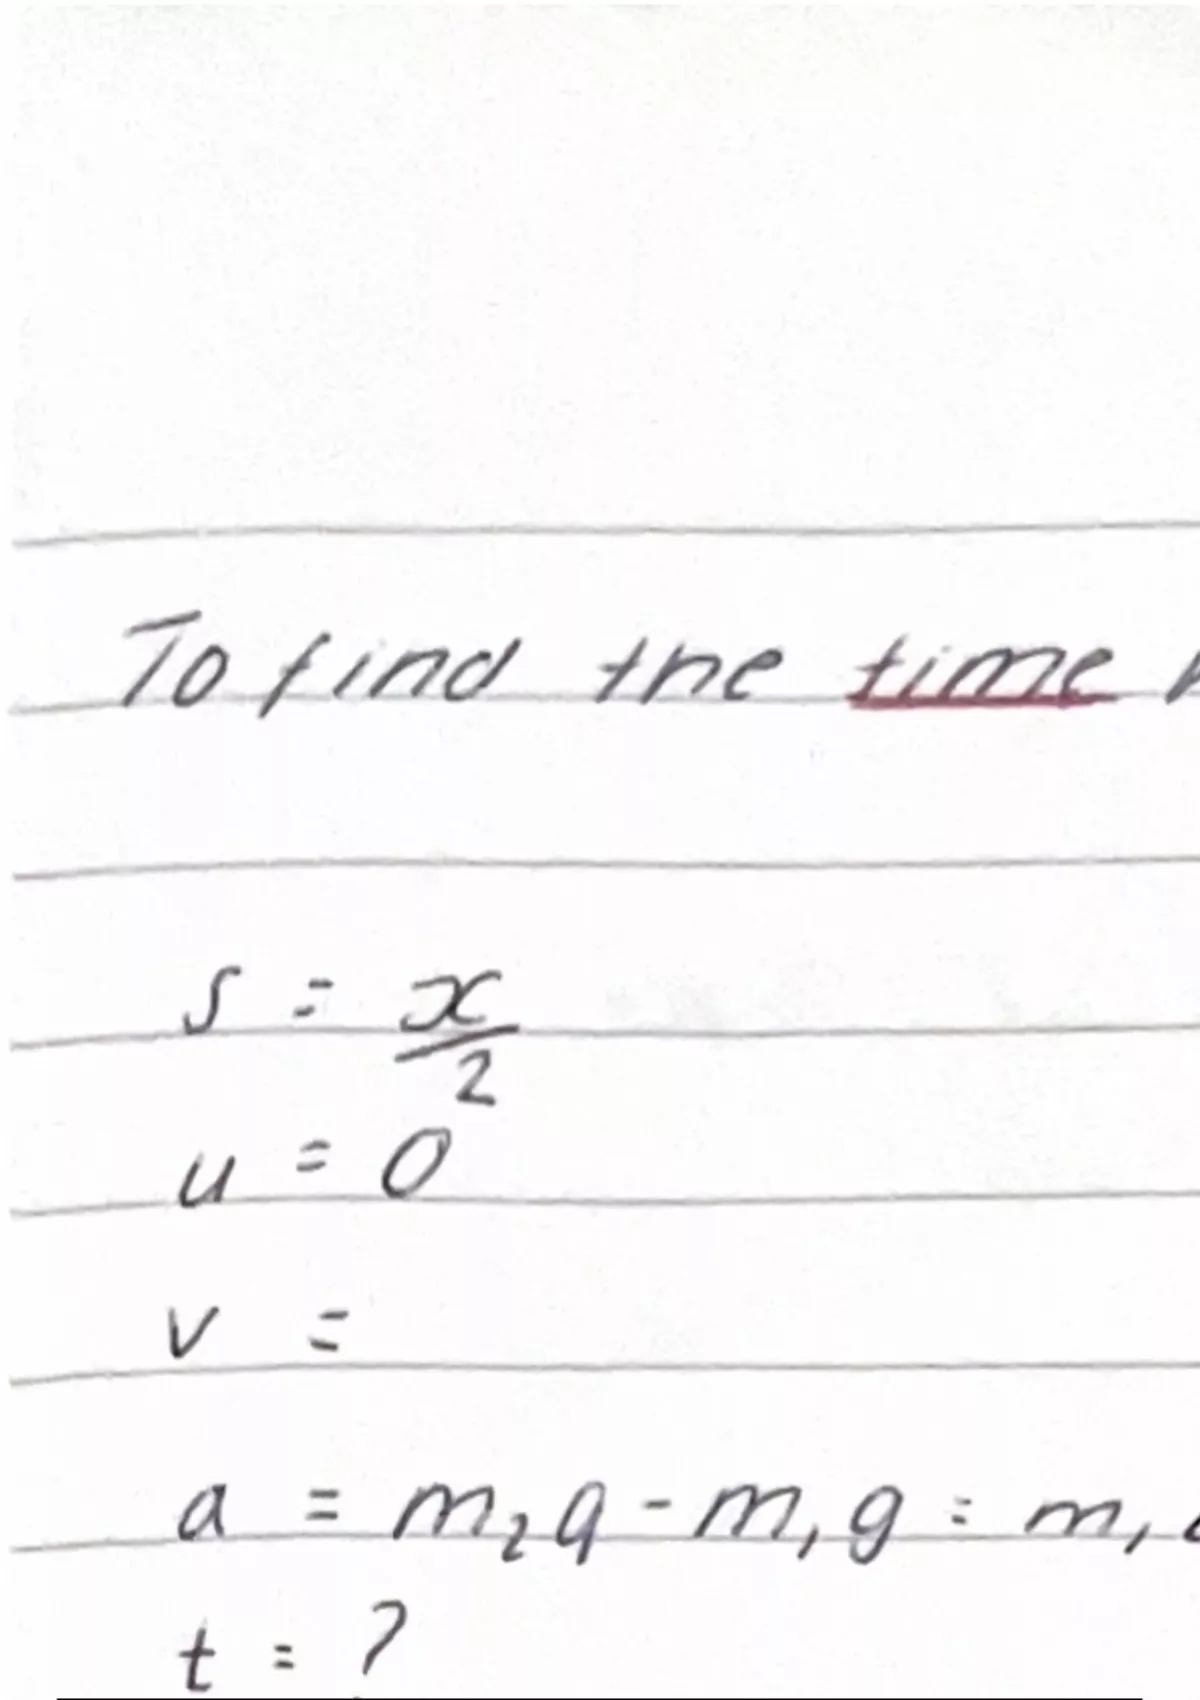 To find the time
s = x/2
u = 0
v =
a = m₂g - m₁g = m₁
t = ?